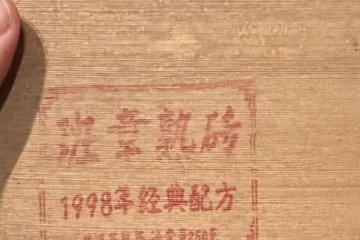 班章熟砖
1998年经典配方